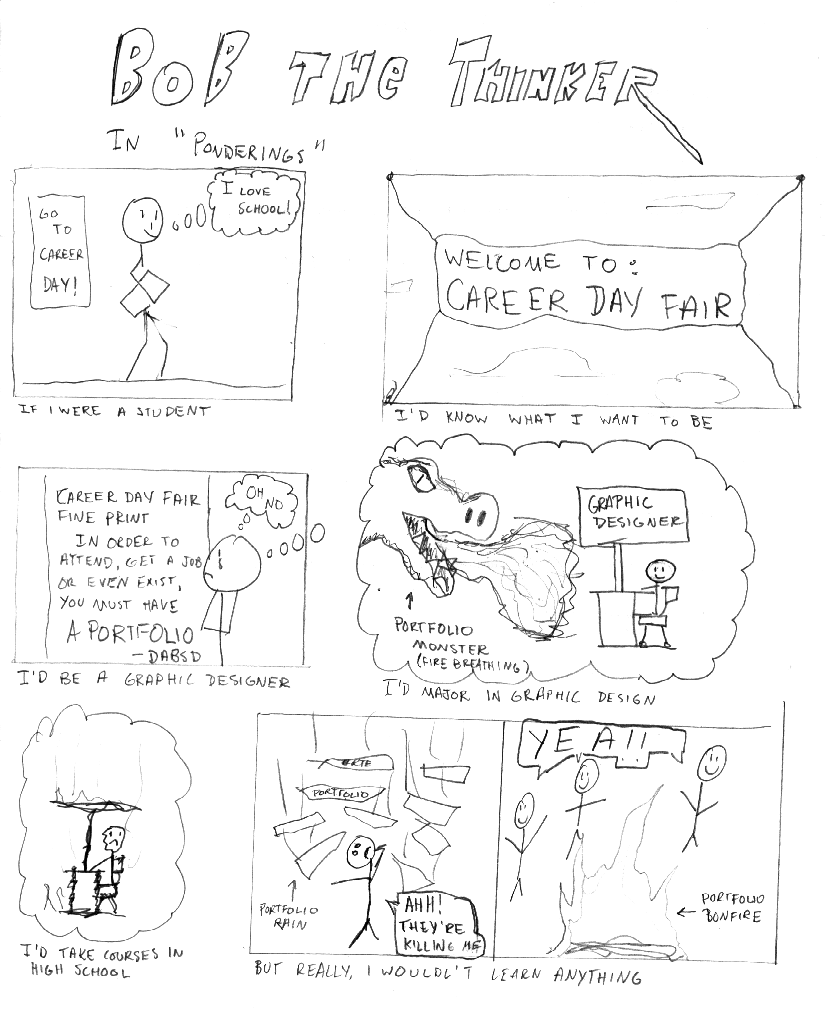 BOB THE THINKER
IN "PONDERINGS"
GO
TO
CAREER
DAY!
I LOVE
SCHOOL!
IF I WERE A STUDENT
WELCOME TO:
CAREER DAY FAIR
I'D KNOW WHAT I WANT TO BE
CAREER DAY FAIR
FINE PRINT
IN ORDER TO
ATTEND, GET A JOB
OR EVEN EXIST,
YOU MUST HAVE
A PORTFOLIO
- DABSD
OH
NO
I'D BE A GRAPHIC DESIGNER
GRAPHIC
DESIGNER
PORTFOLIO
MONSTER
(FIRE BREATHING)
I'D MAJOR IN GRAPHIC DESIGN
I'D TAKE COURSES IN
HIGH SCHOOL
PORTFOLIO
PORTFOLIO
RAIN
AHH!
THEY'RE
KILLING ME
YEA!!
PORTFOLIO
BONFIRE
BUT REALLY, I WOULDL'T LEARN ANYTHING